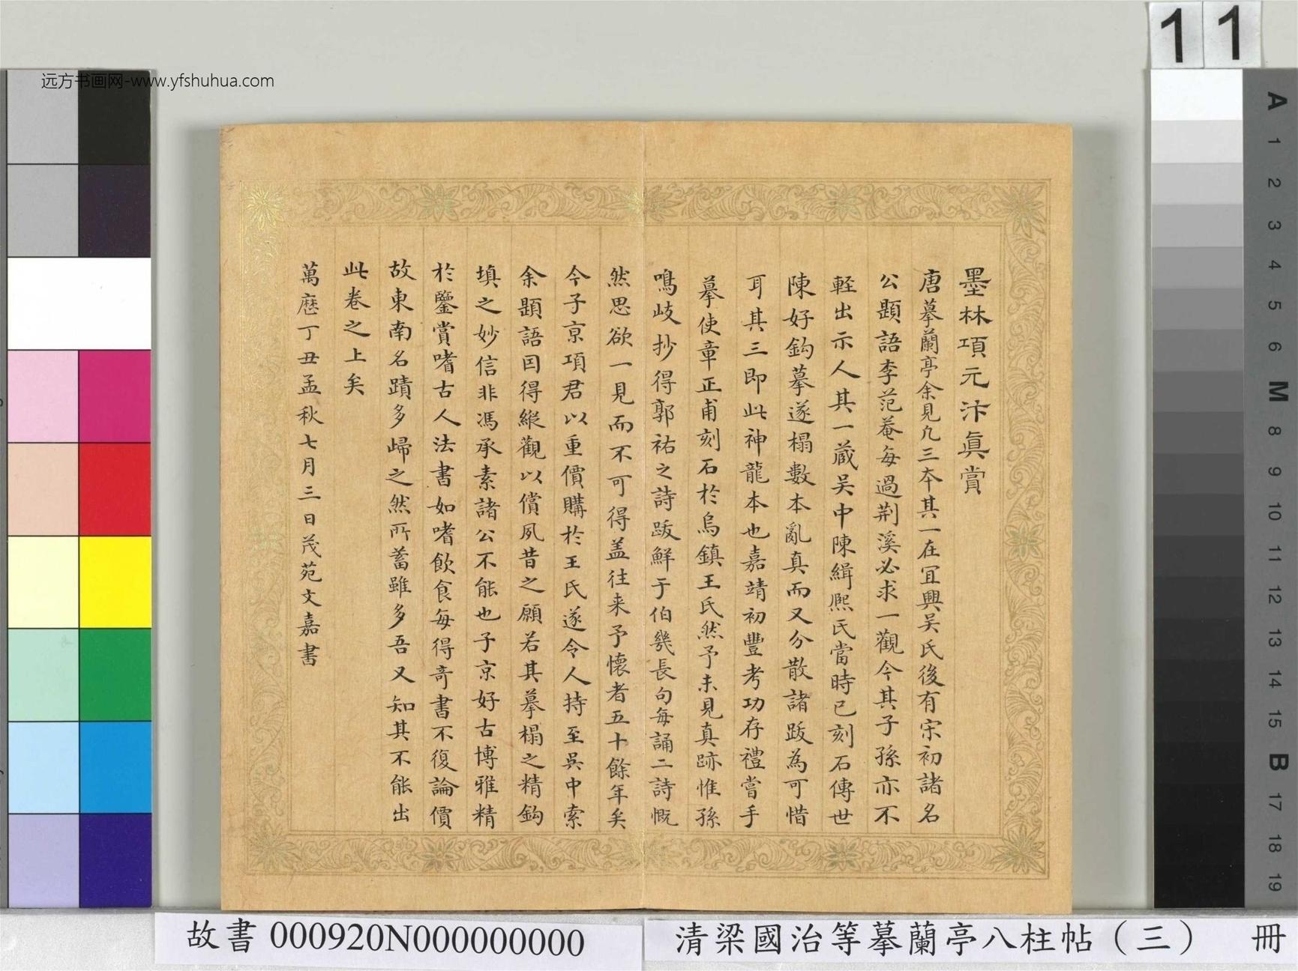 11
远方书画网-www.yfshuhua.com
墨林項元汴真賞
唐摹蘭亭余見凢三夲其一在冝興吴氏後有宋初諸名
公題語李范菴每過荆溪必求一觀今其子孫亦不
輕出示人其一蔵吴中陳緝熈氏當時已刻石傳世
陳好鈎摹遂榻數本亂真而又分散諸跋為可惜
耳其三即此神龍本也嘉靖初豐考功存禮嘗手
摹使章正甫刻石於烏鎮王氏然予未見真跡惟孫
鳴岐抄得郭祐之詩跋鮮于伯幾長句每誦二詩慨
然思欲一見而不可得盖往来予懷者五十餘年矣
今子京項君以重價購於王氏遂令人持至吴中索
余題語囙得縱觀以償夙昔之願若其摹榻之精鈎
填之妙信非馮承素諸公不能也子京好古博雅精
於鑒賞嗜古人法書如嗜飲食每得竒書不復論價
故東南名蹟多歸之然所蓄雖多吾又知其不能出
此卷之上矣
萬歷丁丑孟秋七月三日茂苑文嘉書
A
1
2
3
4
5
6
M
8
9
10
11
12
13
14
15
B
17
18
19
故書 000920N000000000
清梁國治等摹蘭亭八柱帖（三） 冊